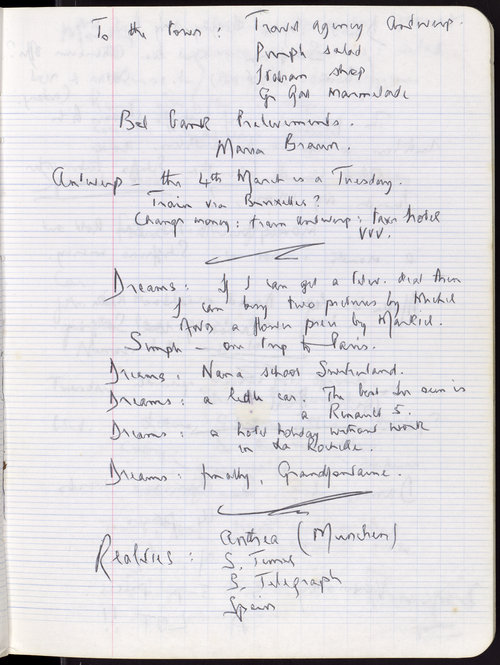 To the town: Travel agency Antwerp.
salad
Italian shop
marmalade
Bel bank
Maria Braun.
Antwerp – the 4th March is a Tuesday.
Train via Bruxelles?
Change money: train Antwerp: taxi hotel
VVV.
Dreams: If I can get a deal then
I can buy two pictures by Michel
a flower piece by
one trip to Paris.
Dreams: school Switzerland.
Dreams: a little car. The best is
a Renault 5.
Dreams: a hotel holiday without work
in La Rochelle.
Dreams: finally, Grandfontaine.
Realities: Anthea (Munchen)
S. Times
S. Telegraph
Spain